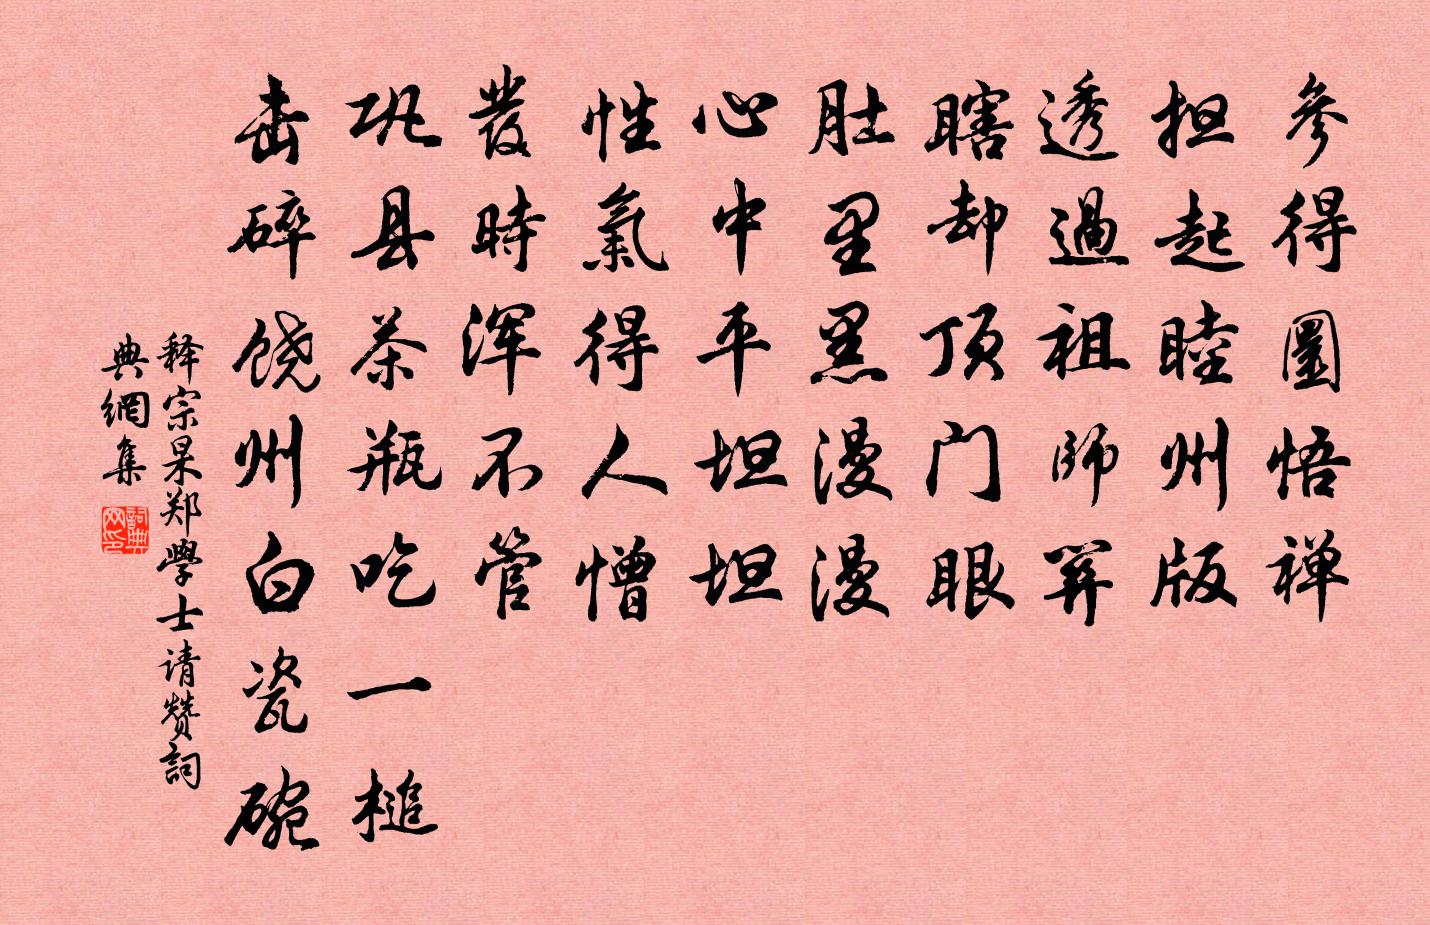 参得圜悟禅
担起睦州版
透過祖师关
瞎却顶门眼
肚里黑漫漫
心中平坦坦
性氣得人憎
發時浑不管
巩县茶瓶吃一槌
击碎饶州白瓷碗
释宗杲郑學士请赞詞
典網集
詞典网印